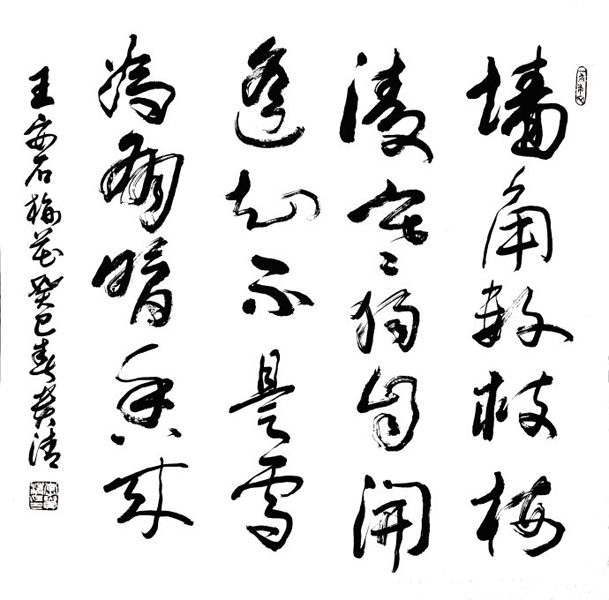 墙角数枝梅
凌寒独自开
遥知不是雪
为有暗香来
王安石梅花癸巳春黄清